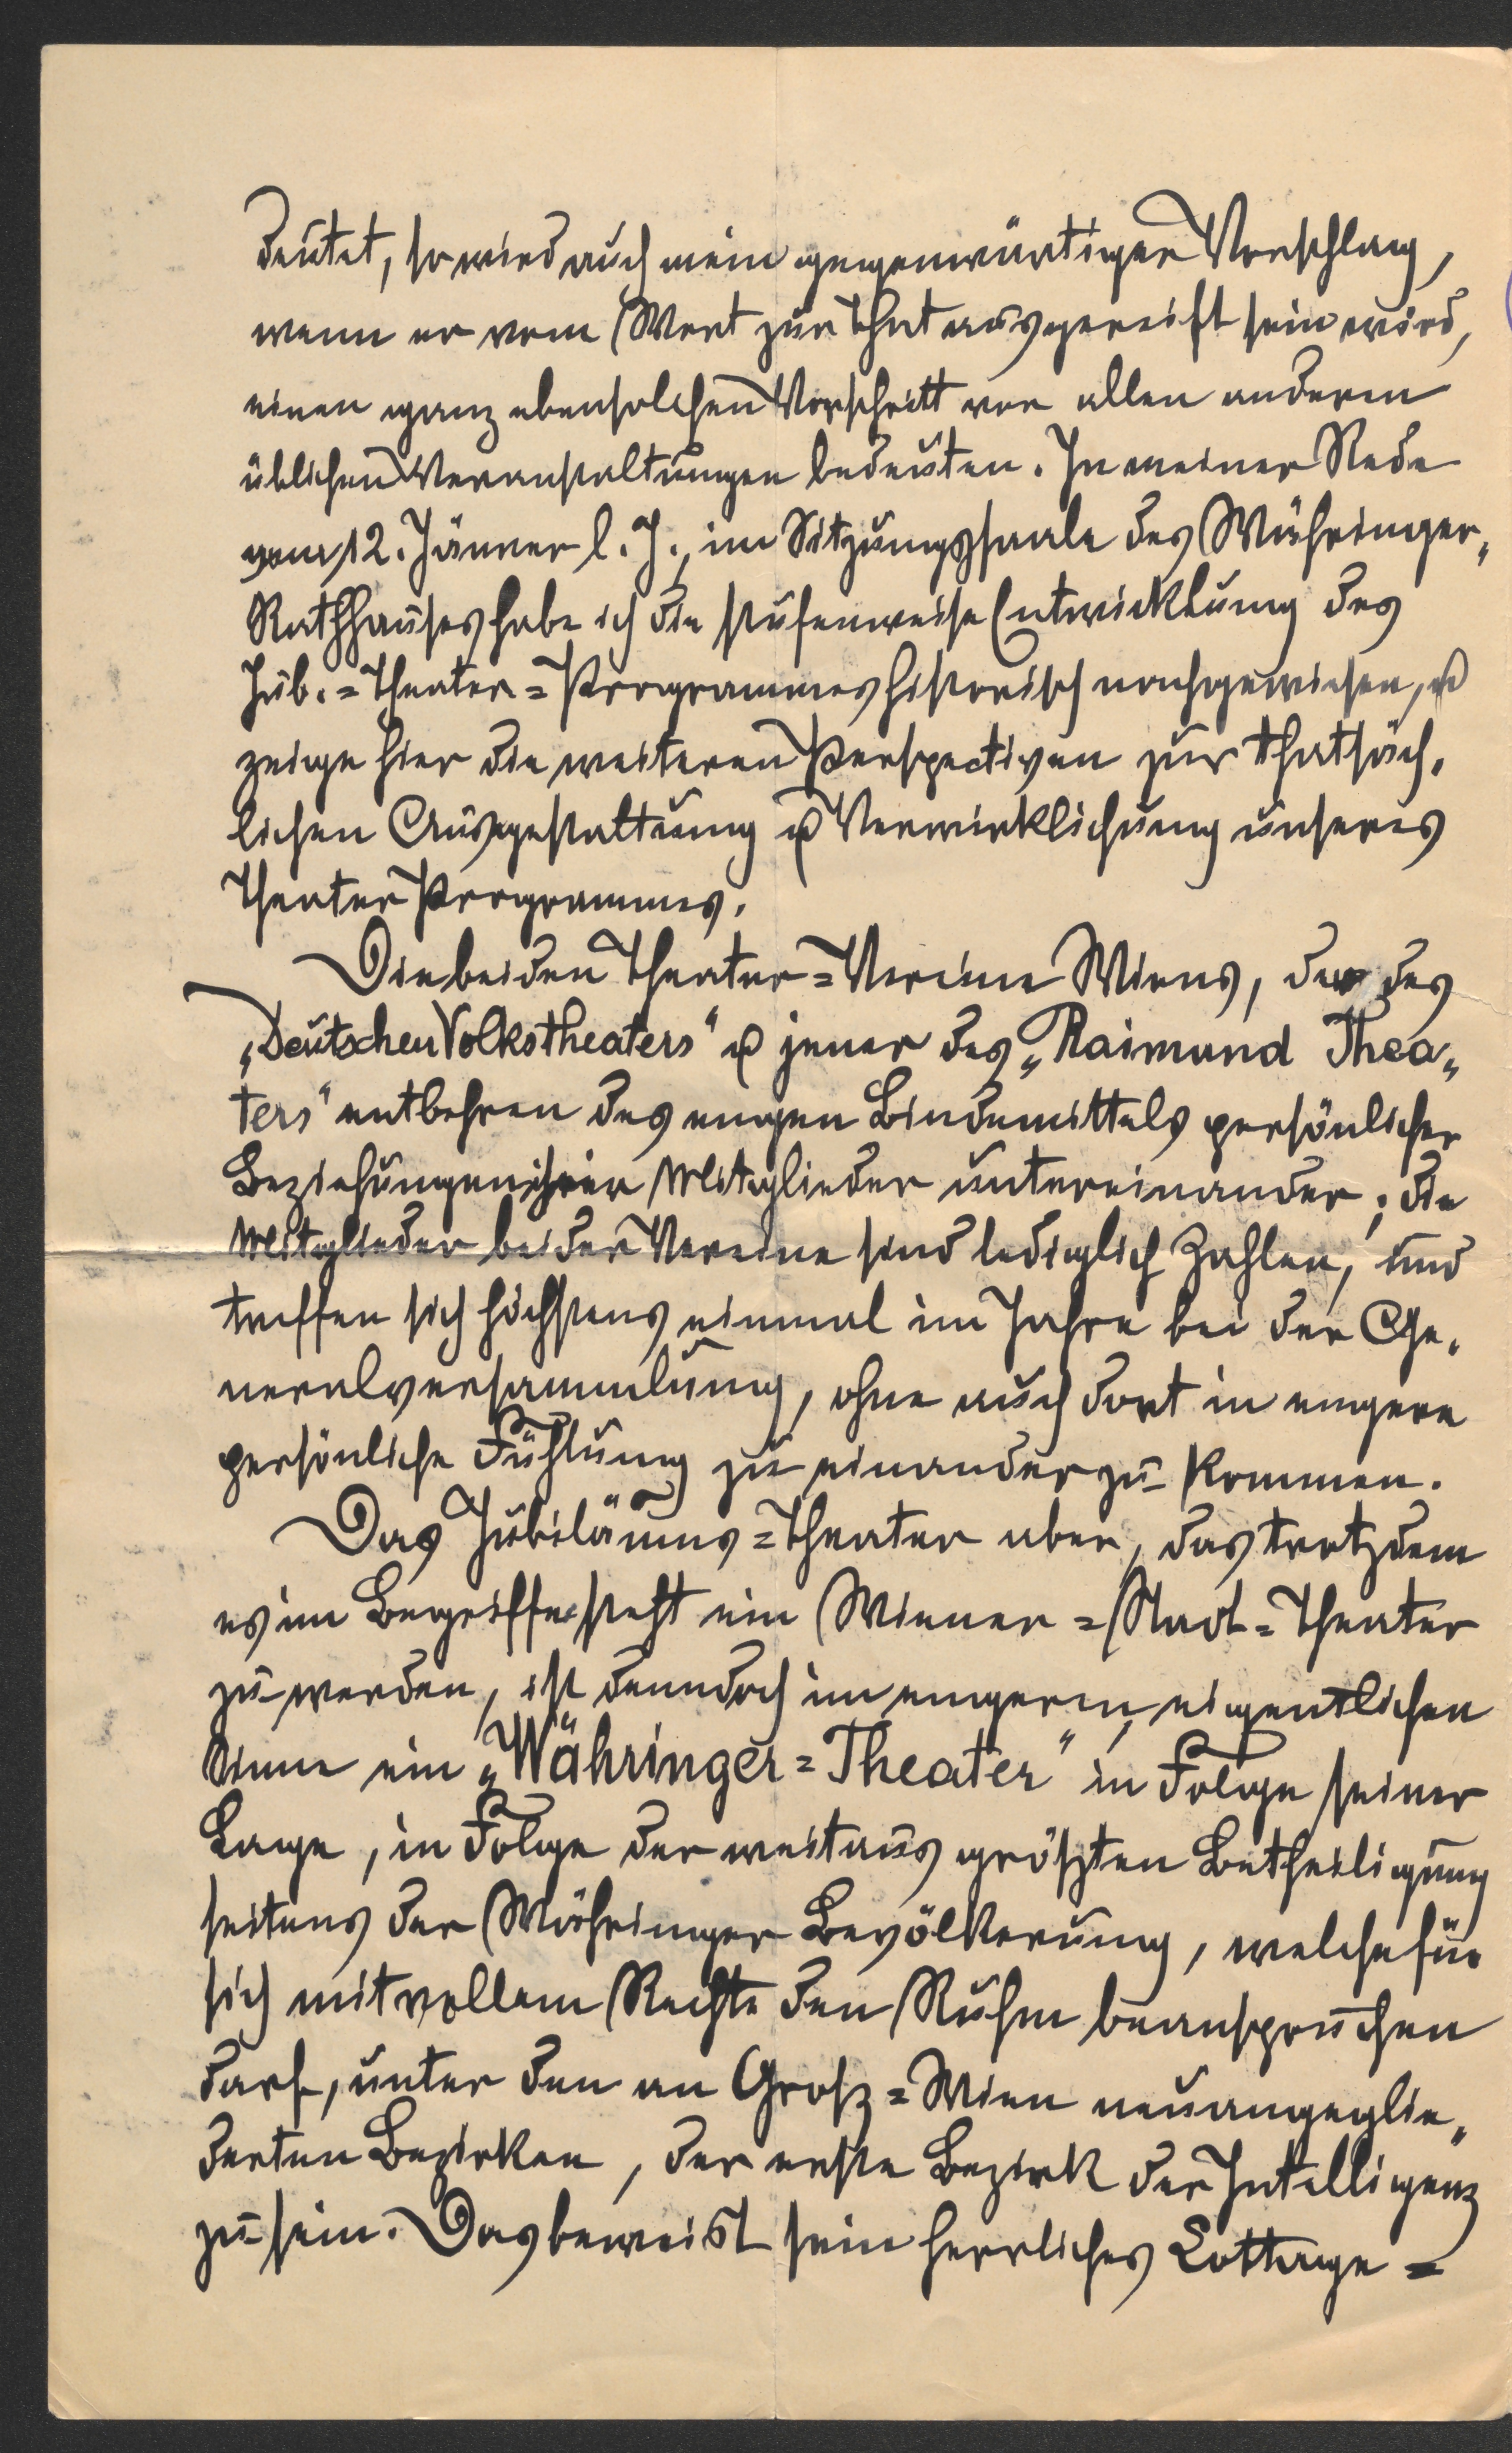 deutet, so wird auch mein gegenwärtiger Vorschlag,
wenn er vom Wort zur That ausgereift sein wird,
einen ganz ebensolchen Vorschritt vor allen anderen
üblichen Veranstaltungen bedeuten. In meiner Rede
vom 12. Jänner l. J., im Sitzungssaale des Währinger„
Rathhauses habe ich die stufenweise Entwicklung des
Jub.=Theater=Programmes historisch nachgewiesen, u
zeige hier die weiteren Perspectiven zur thatsäch„
lichen Ausgestaltung u Verwirklichung unseres
Theater Programmes.
Die beiden Theater=Vereine Wiens, der des
„Deutschen Volkstheaters" u jener des „Raimund Thea„
ters" entbehren des engen Bindemittels persönlicher
Beziehungen ihrer Mitglieder untereinander; die
Mitglieder beider Vereine sind lediglich Zahlen, und
treffen sich höchstens einmal im Jahre bei der Ge„
neralversammlung, ohne auch dort in engere
persönliche Fühlung zu einander zu kommen.
Das Jubiläums=Theater aber, das trotzdem
es im Begriffe steht ein Wiener=Stadt=Theater
zu werden, ist denndoch im engeren, eigentlichen
Sinne ein „Währinger=Theater" in Folge seiner
Lage, in Folge der weitaus größten Betheiligung
seitens der Währinger Bevölkerung, welche für
sich mit vollem Rechte den Ruhm beanspruchen
darf, unter den an Groß=Wien neuangeglie„
derten Bezirken, der erste Bezirk der Intelligenz
zu sein. Das beweist sein herrliches Cottage=